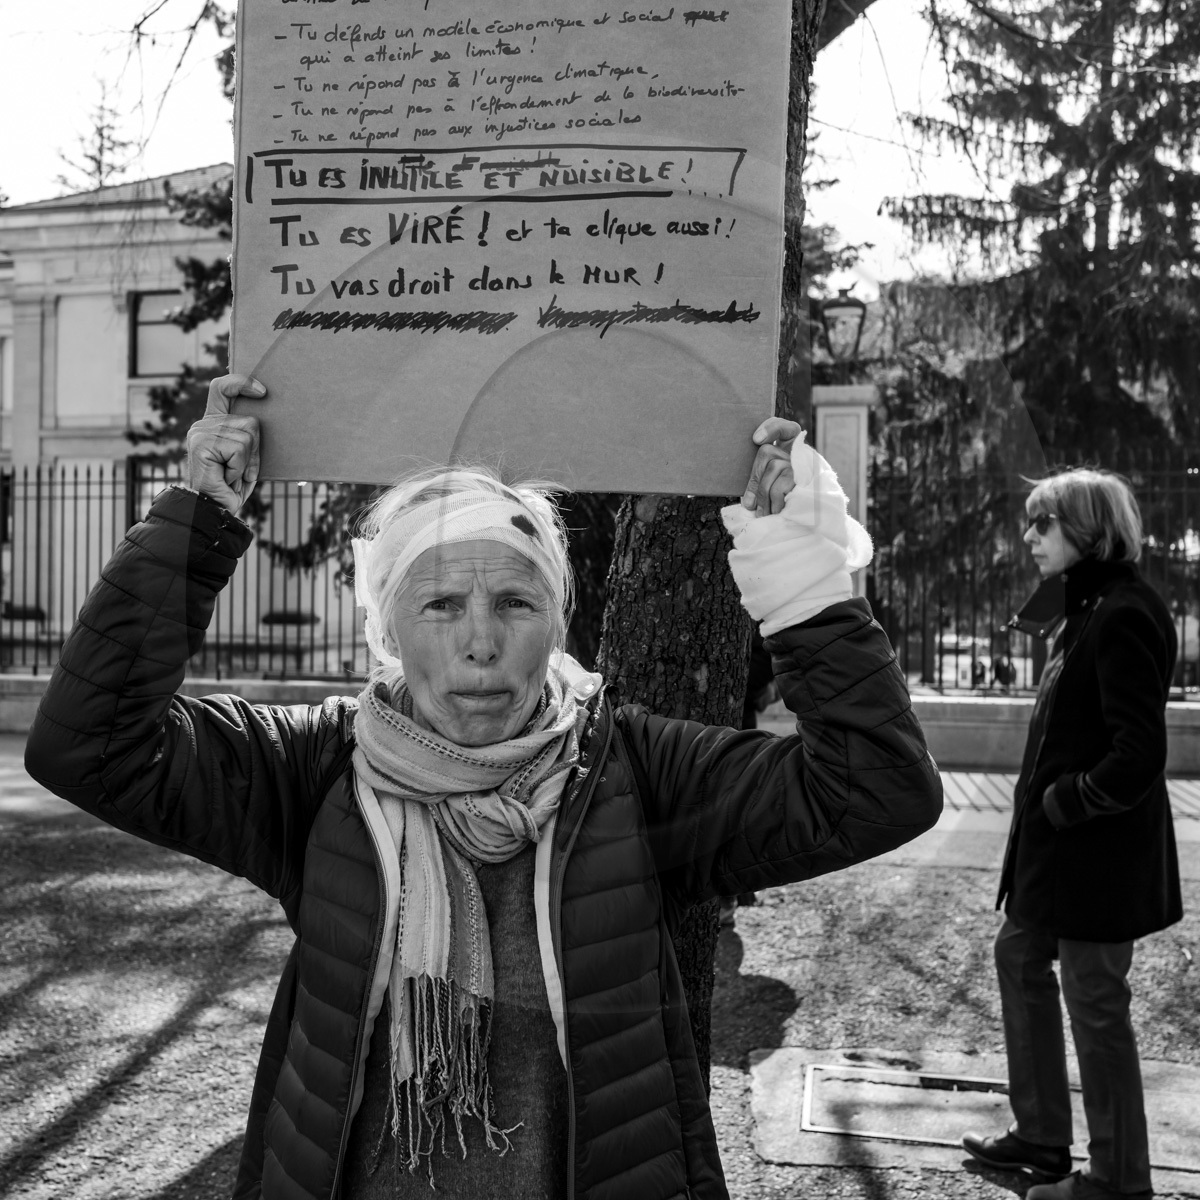 - Tu défends un modèle économique et social
qui a atteint ses limites !
- Tu ne répond pas à l'urgence climatique,
- Tu ne répond pas à l'effondrement de la biodiversité
- Tu ne répond pas aux injustices sociales
TU ES INUTILE ET NUISIBLE !
Tu es VIRÉ ! et ta clique aussi !
Tu vas droit dans le MUR !